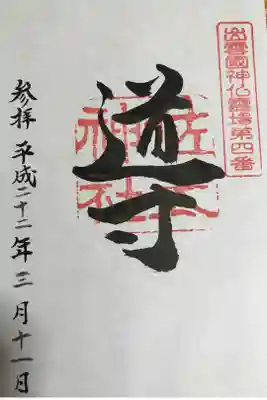 出雲國神仏靈場第四番
導
佐太
神社
参拝 平成二十二年三月十一日